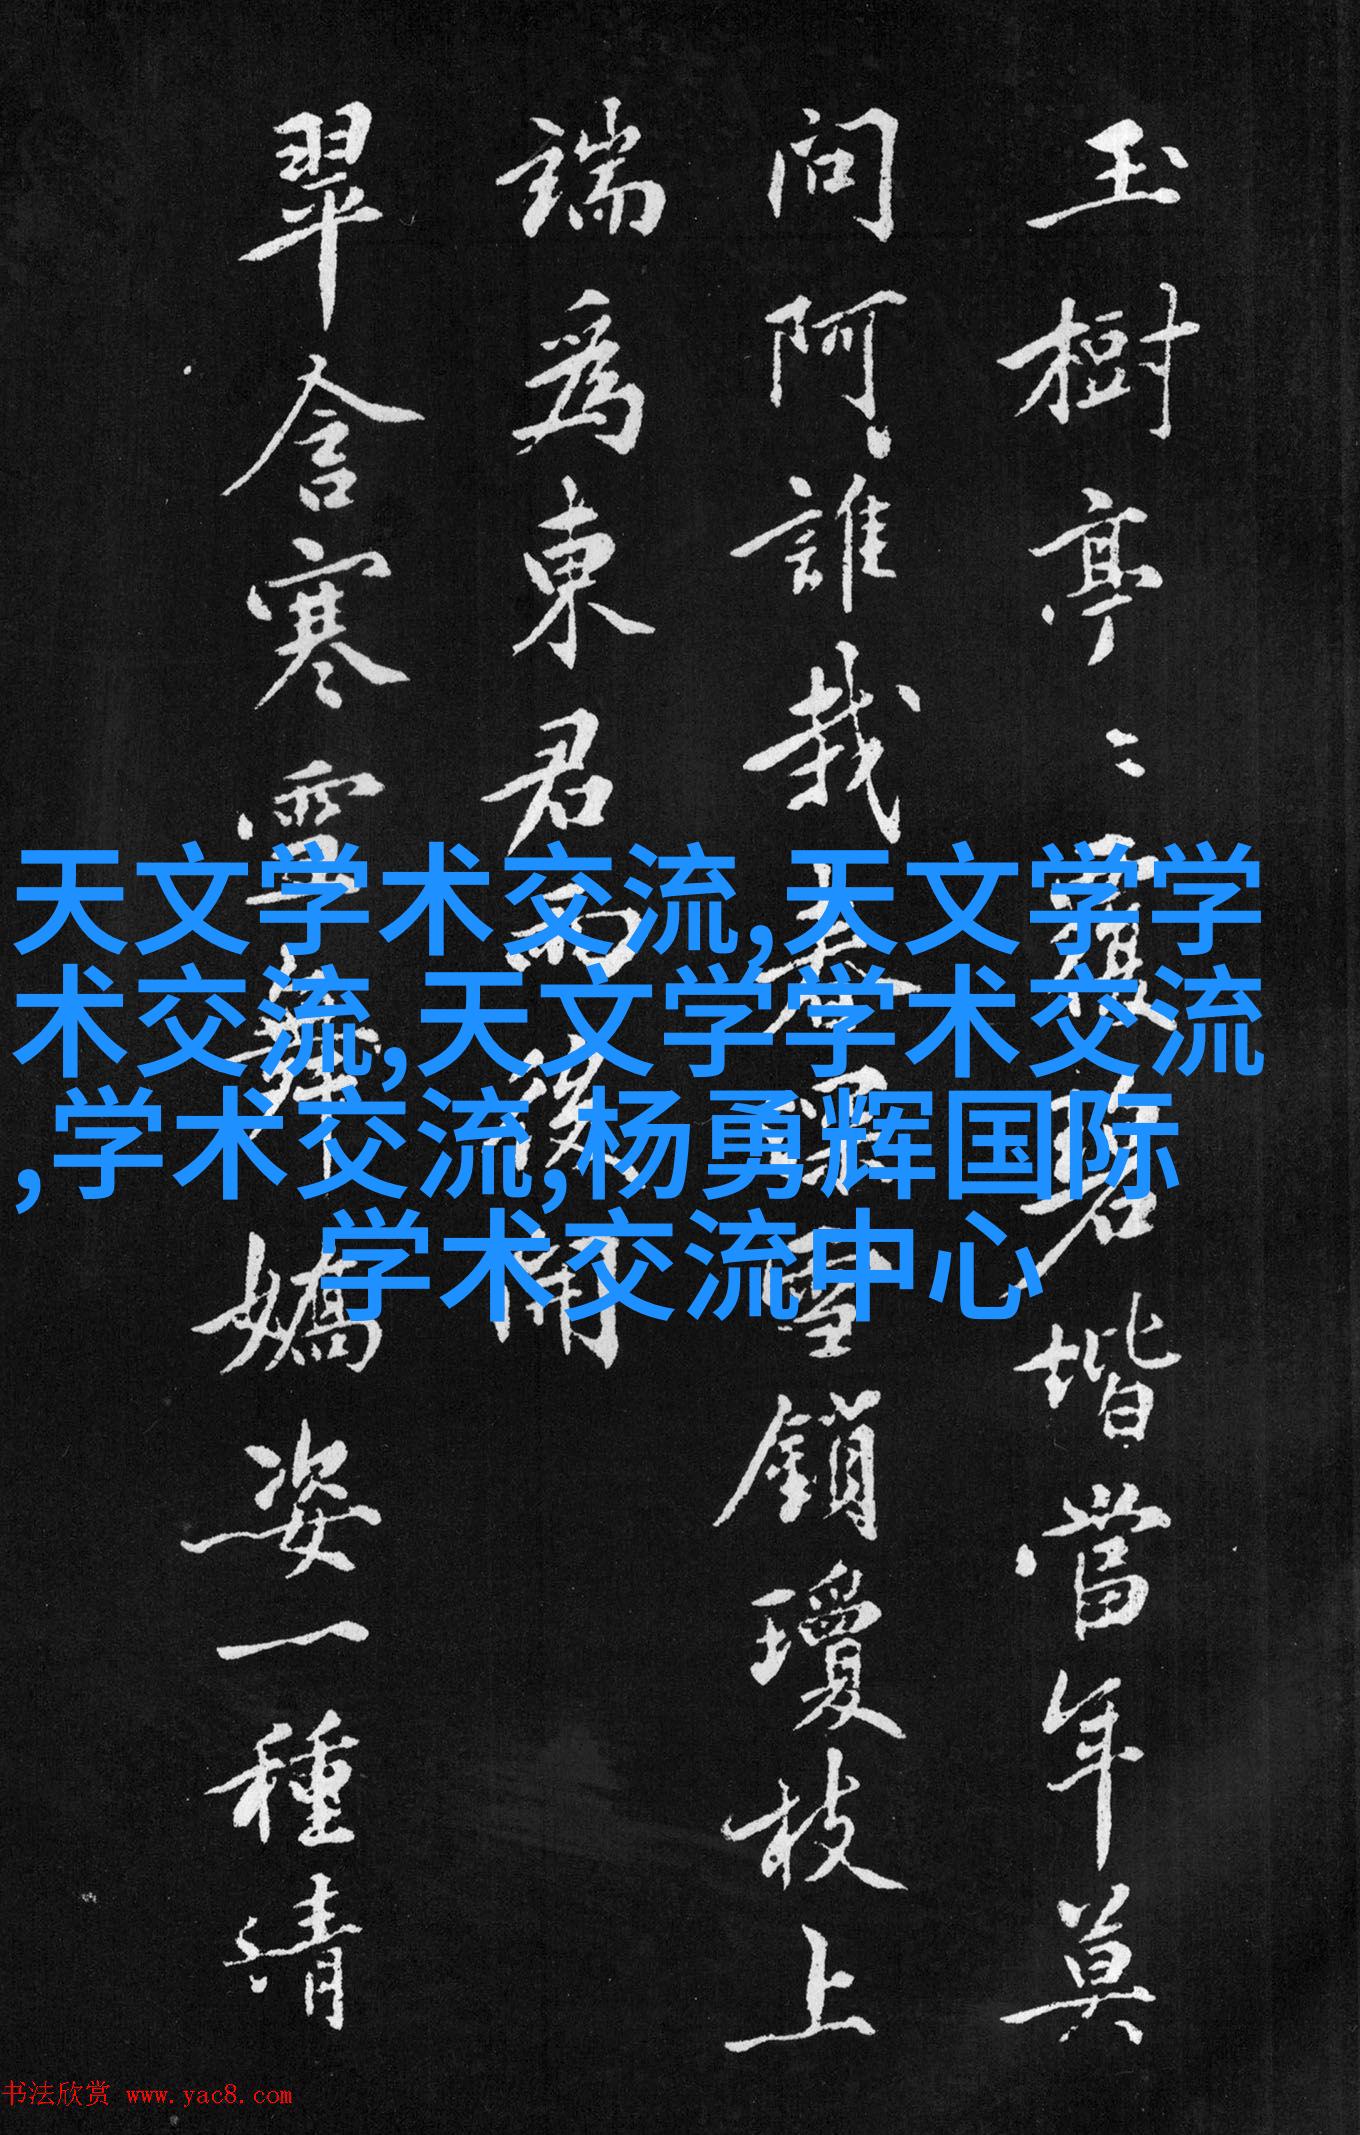 玉樹亭〻覆碧堦當年莫
問阿誰栽春雪鎖瓊枝上
端爲東君雨後開
翠含寒舞嬌姿一種清
天文学术交流,天文学学
术交流,天文学学术交流
,学术交流,杨勇辉国际
学术交流中心
书法欣赏 www.yac8.com